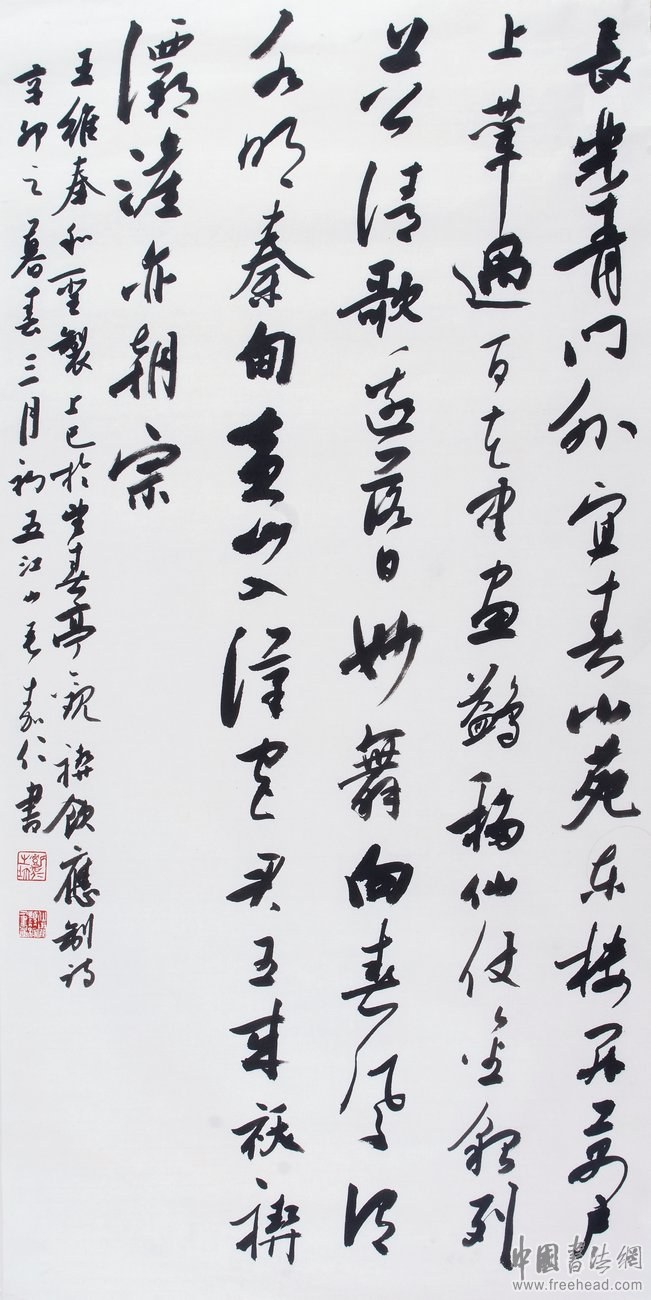 長樂青門外宜春小苑东楼开萬户
上輦過百花中畫鷁移仙仗金貂列
上公清歌邀落日妙舞向春風渭
水明秦甸黄山入漢宫君王来祓禊
灞滻亦朝宗
王維奉和聖製上巳於望春亭觀禊飲應制詩
辛卯之暮春三月初五江山嘉仁書
中國書法網
www.freehead.com